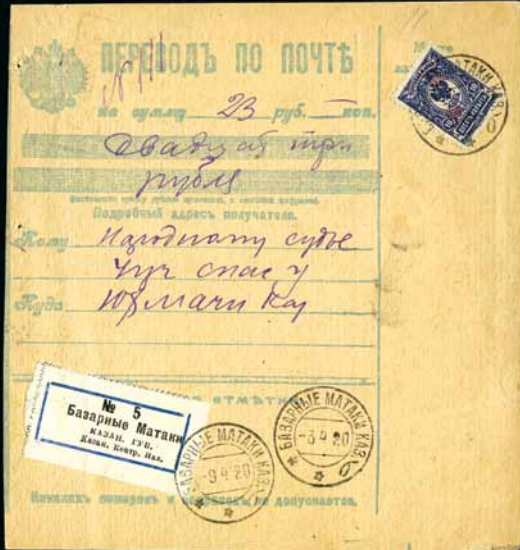 ПЕРЕВОДЪ ПО ПОЧТѢ
на сумму 23 руб. — коп.
Двадцать три
рубля
Подробный адресъ получателя.
Кому Народному судье
4 уч спас у
Куда Юрмачи Каз
№ 5
Базарные Матаки
КАЗАН. ГУБ.
Казан. Контр. Пал.
БАЗАРНЫЕ МАТАКИ КАЗ.
-9 4 20
БАЗАРНЫЕ МАТАКИ КАЗ.
-3 4 20
МАТАКИ КАЗ.
Никакихъ помарокъ и не допускается.